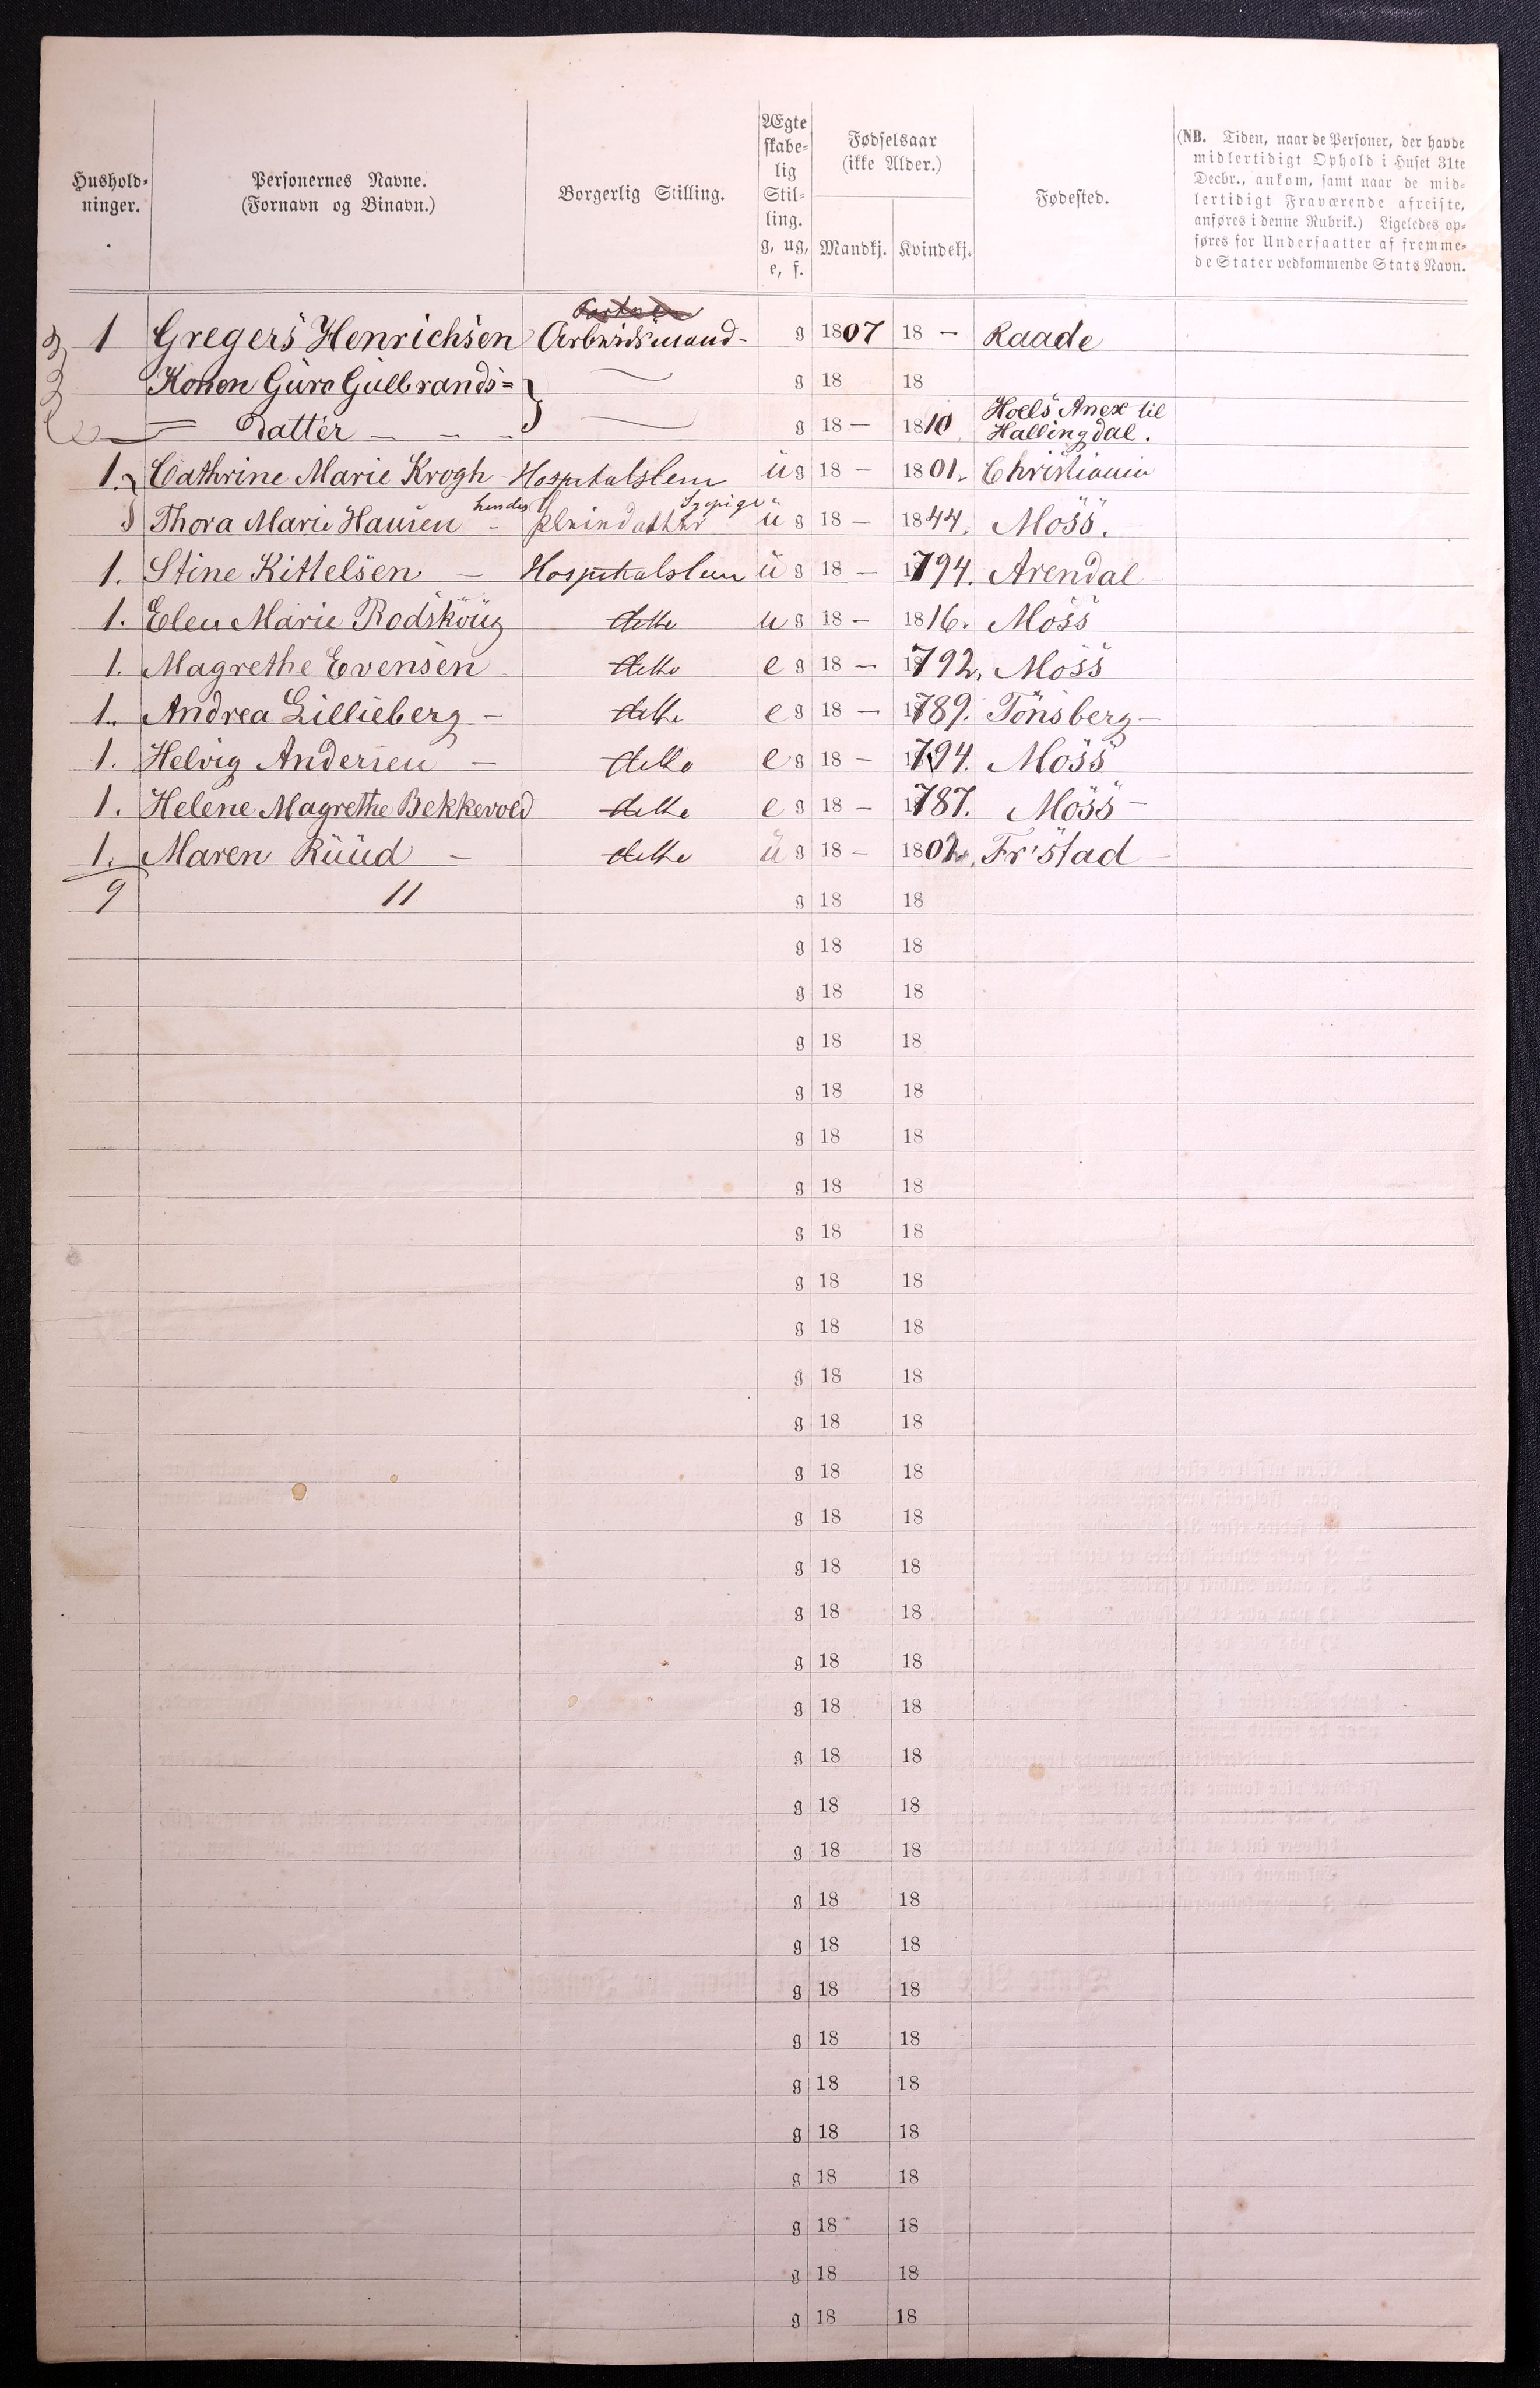 Hushold-
ninger.
Personernes Navne.
(Fornavn og Binavn.)
Borgerlig Stilling.
Ægte
skabe-
lig
Stil-
ling.
g, ug,
e, f.
Fødselsaar
(ikke Alder.)
Mandkj. Kvindekj.
Fødested.
(NB. Tiden, naar de Personer, der havde
midlertidigt Ophold i Huset 31te
Decbr., ankom, samt naar de mid-
lertidigt Fraværende afreiste,
anføres i denne Rubrik.) Ligeledes op-
føres for Undersaatter af fremme-
de Stater vedkommende Stats Navn.
1 Gregers Henrichsen Arbeidsmand - g 1807 18 — Raade
Konen Guro Gulbrands= g 18 18
Datter — — - g 18 — 1810 Hoels Anex til
Hallingdal.
1. Cathrine Marie Krogh Hospitalslem ug 18 — 1801. Christiania
Thora Marie Hansen - hendes Pleiedatter Sypige ug 18 — 1844. Moss.
1. Stine Kittelsen — Hospitalslem ug 18 — 1794. Arendal
1. Elen Marie Rodskoug ditto ug 18 — 1816. Moss
1. Magrethe Evensen ditto e g 18 — 1792. Moss
1. Andrea Lillieberg — ditto e g 18 — 1789. Tönsberg —
1. Helvig Andersen — ditto e g 18 — 1794. Moss
1. Helene Magrethe Bekkevold ditto e g 18 — 1787. Moss —
1. Maren Ruud — ditto ug 18 — 1802. Fr'stad —
9 11 g 18 18
g 18 18
g 18 18
g 18 18
g 18 18
g 18 18
g 18 18
g 18 18
g 18 18
g 18 18
g 18 18
g 18 18
g 18 18
g 18 18
g 18 18
g 18 18
g 18 18
g 18 18
g 18 18
g 18 18
g 18 18
g 18 18
g 18 18
g 18 18
g 18 18
g 18 18
g 18 18
g 18 18
g 18 18
g 18 18
g 18 18